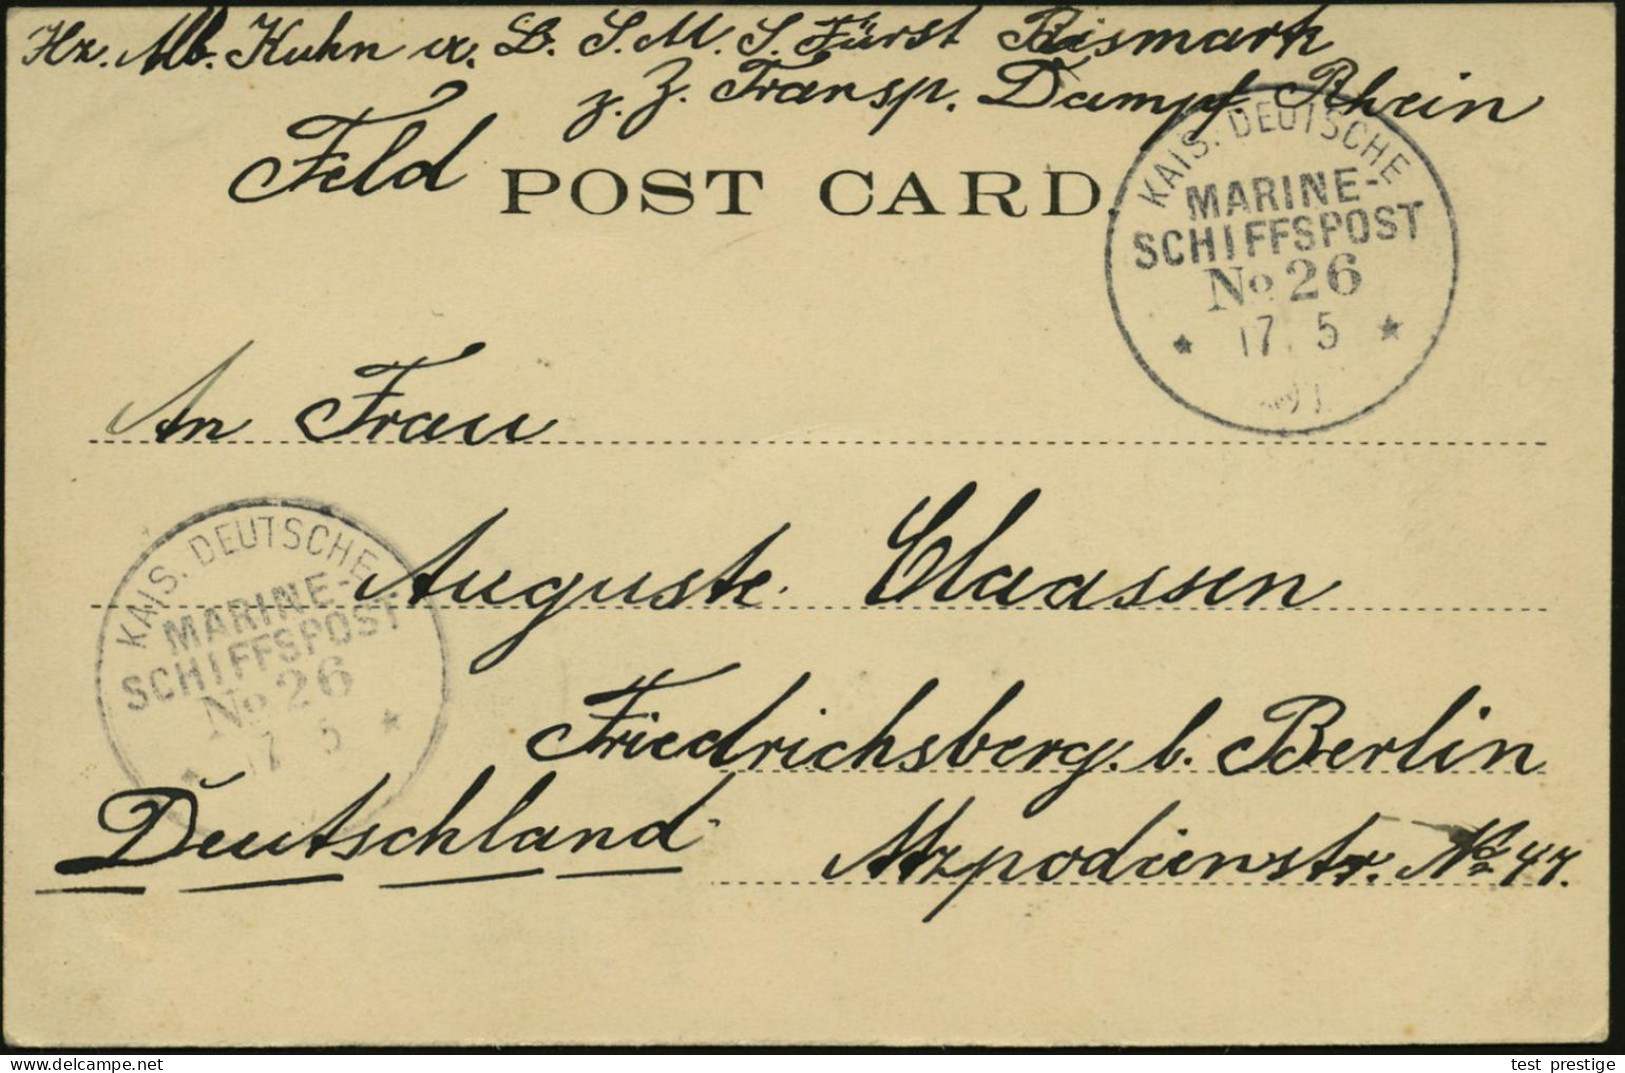 Hz. Mb. Kuhn a. B. S. M. S. Fürst Bismark
z. Z. Transp. Dampf. Rhein
Feld POST CARD.
KAIS. DEUTSCHE
MARINE-
SCHIFFSPOST
No 26
* 17. 5 *
An Frau
Auguste Claassen
KAIS. DEUTSCHE
MARINE-
SCHIFFSPOST
No 26
* 17 5 *
Friedrichsberg. b. Berlin
Deutschland
No 47.
test prestige